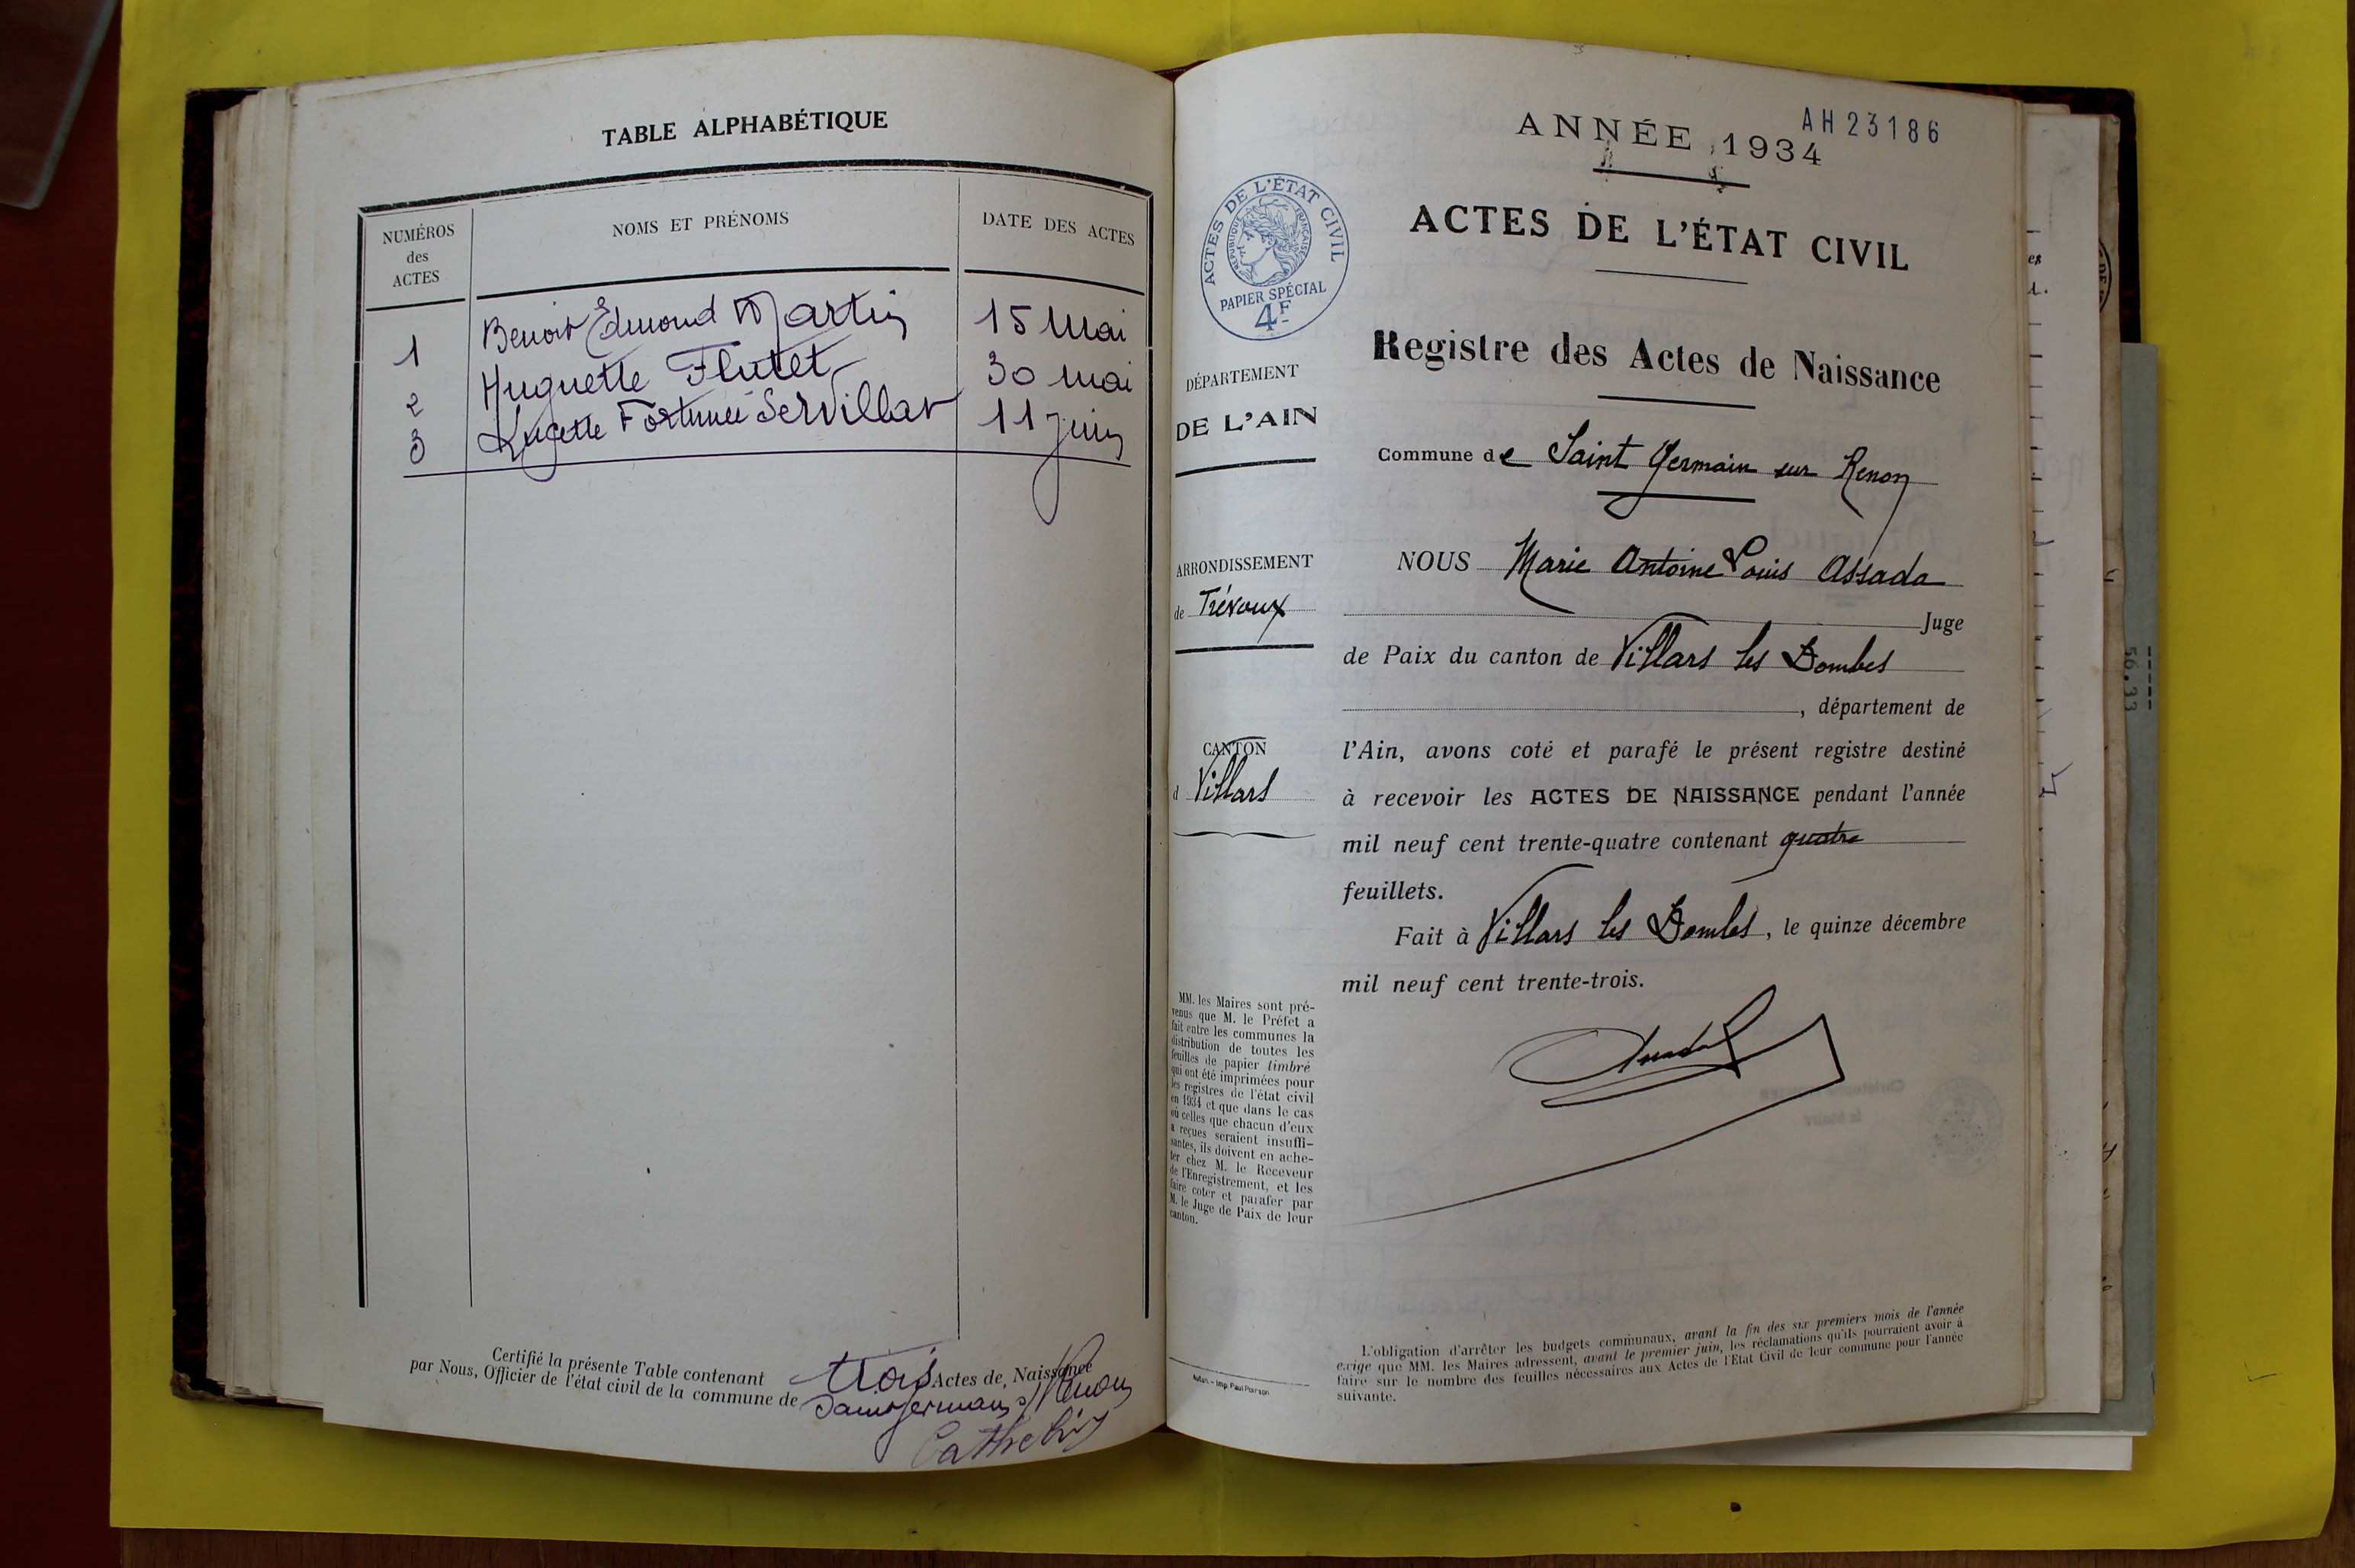 TABLE ALPHABÉTIQUE
NUMÉROS
des
ACTES
NOMS ET PRÉNOMS
DATE DES ACTES
1 Benoit Edmond Martin 15 Mai
2 Huguette Flutet 30 mai
3 Lucette Fortunée Servillat 11 Juin
Certifié la présente Table contenant trois Actes de Naissance
par Nous, Officier de l'état civil de la commune de Saint Germain s/ Renon
AH 23186
ANNÉE 1934
ACTES DE L'ÉTAT CIVIL
RÉPUBLIQUE FRANÇAISE
PAPIER SPÉCIAL
4F
ACTES DE L'ÉTAT CIVIL
Registre des Actes de Naissance
DÉPARTEMENT
DE L'AIN
Commune de Saint Germain sur Renon
ARRONDISSEMENT
de Trévoux
CANTON
d Villars
NOUS Marie Antoine Louis Assada
Juge
de Paix du canton de Villars les Dombes
, département de
l'Ain, avons coté et parafé le présent registre destiné
à recevoir les ACTES DE NAISSANCE pendant l'année
mil neuf cent trente-quatre contenant quatre
feuillets.
Fait à Villars les Dombes, le quinze décembre
mil neuf cent trente-trois.
MM. les Maires sont pré-
venus que M. le Préfet a
fait entre les communes la
distribution de toutes les
feuilles de papier timbré
qui ont été imprimées pour
les registres de l'état civil
en 1934 et que dans le cas
où celles que chacun d'eux
a reçues seraient insuffi-
santes, ils doivent en ache-
ter chez M. le Receveur
de l'Enregistrement, et les
faire coter et parafer par
M. le Juge de Paix de leur
canton.
L'obligation d'arrêter les budgets communaux, avant la fin des six premiers mois de l'année
exige que MM. les Maires adressent, avant le premier juin, les réclamations qu'ils pourraient avoir à
faire sur le nombre des feuilles nécessaires aux Actes de l'Etat Civil de leur commune pour l'année
suivante.